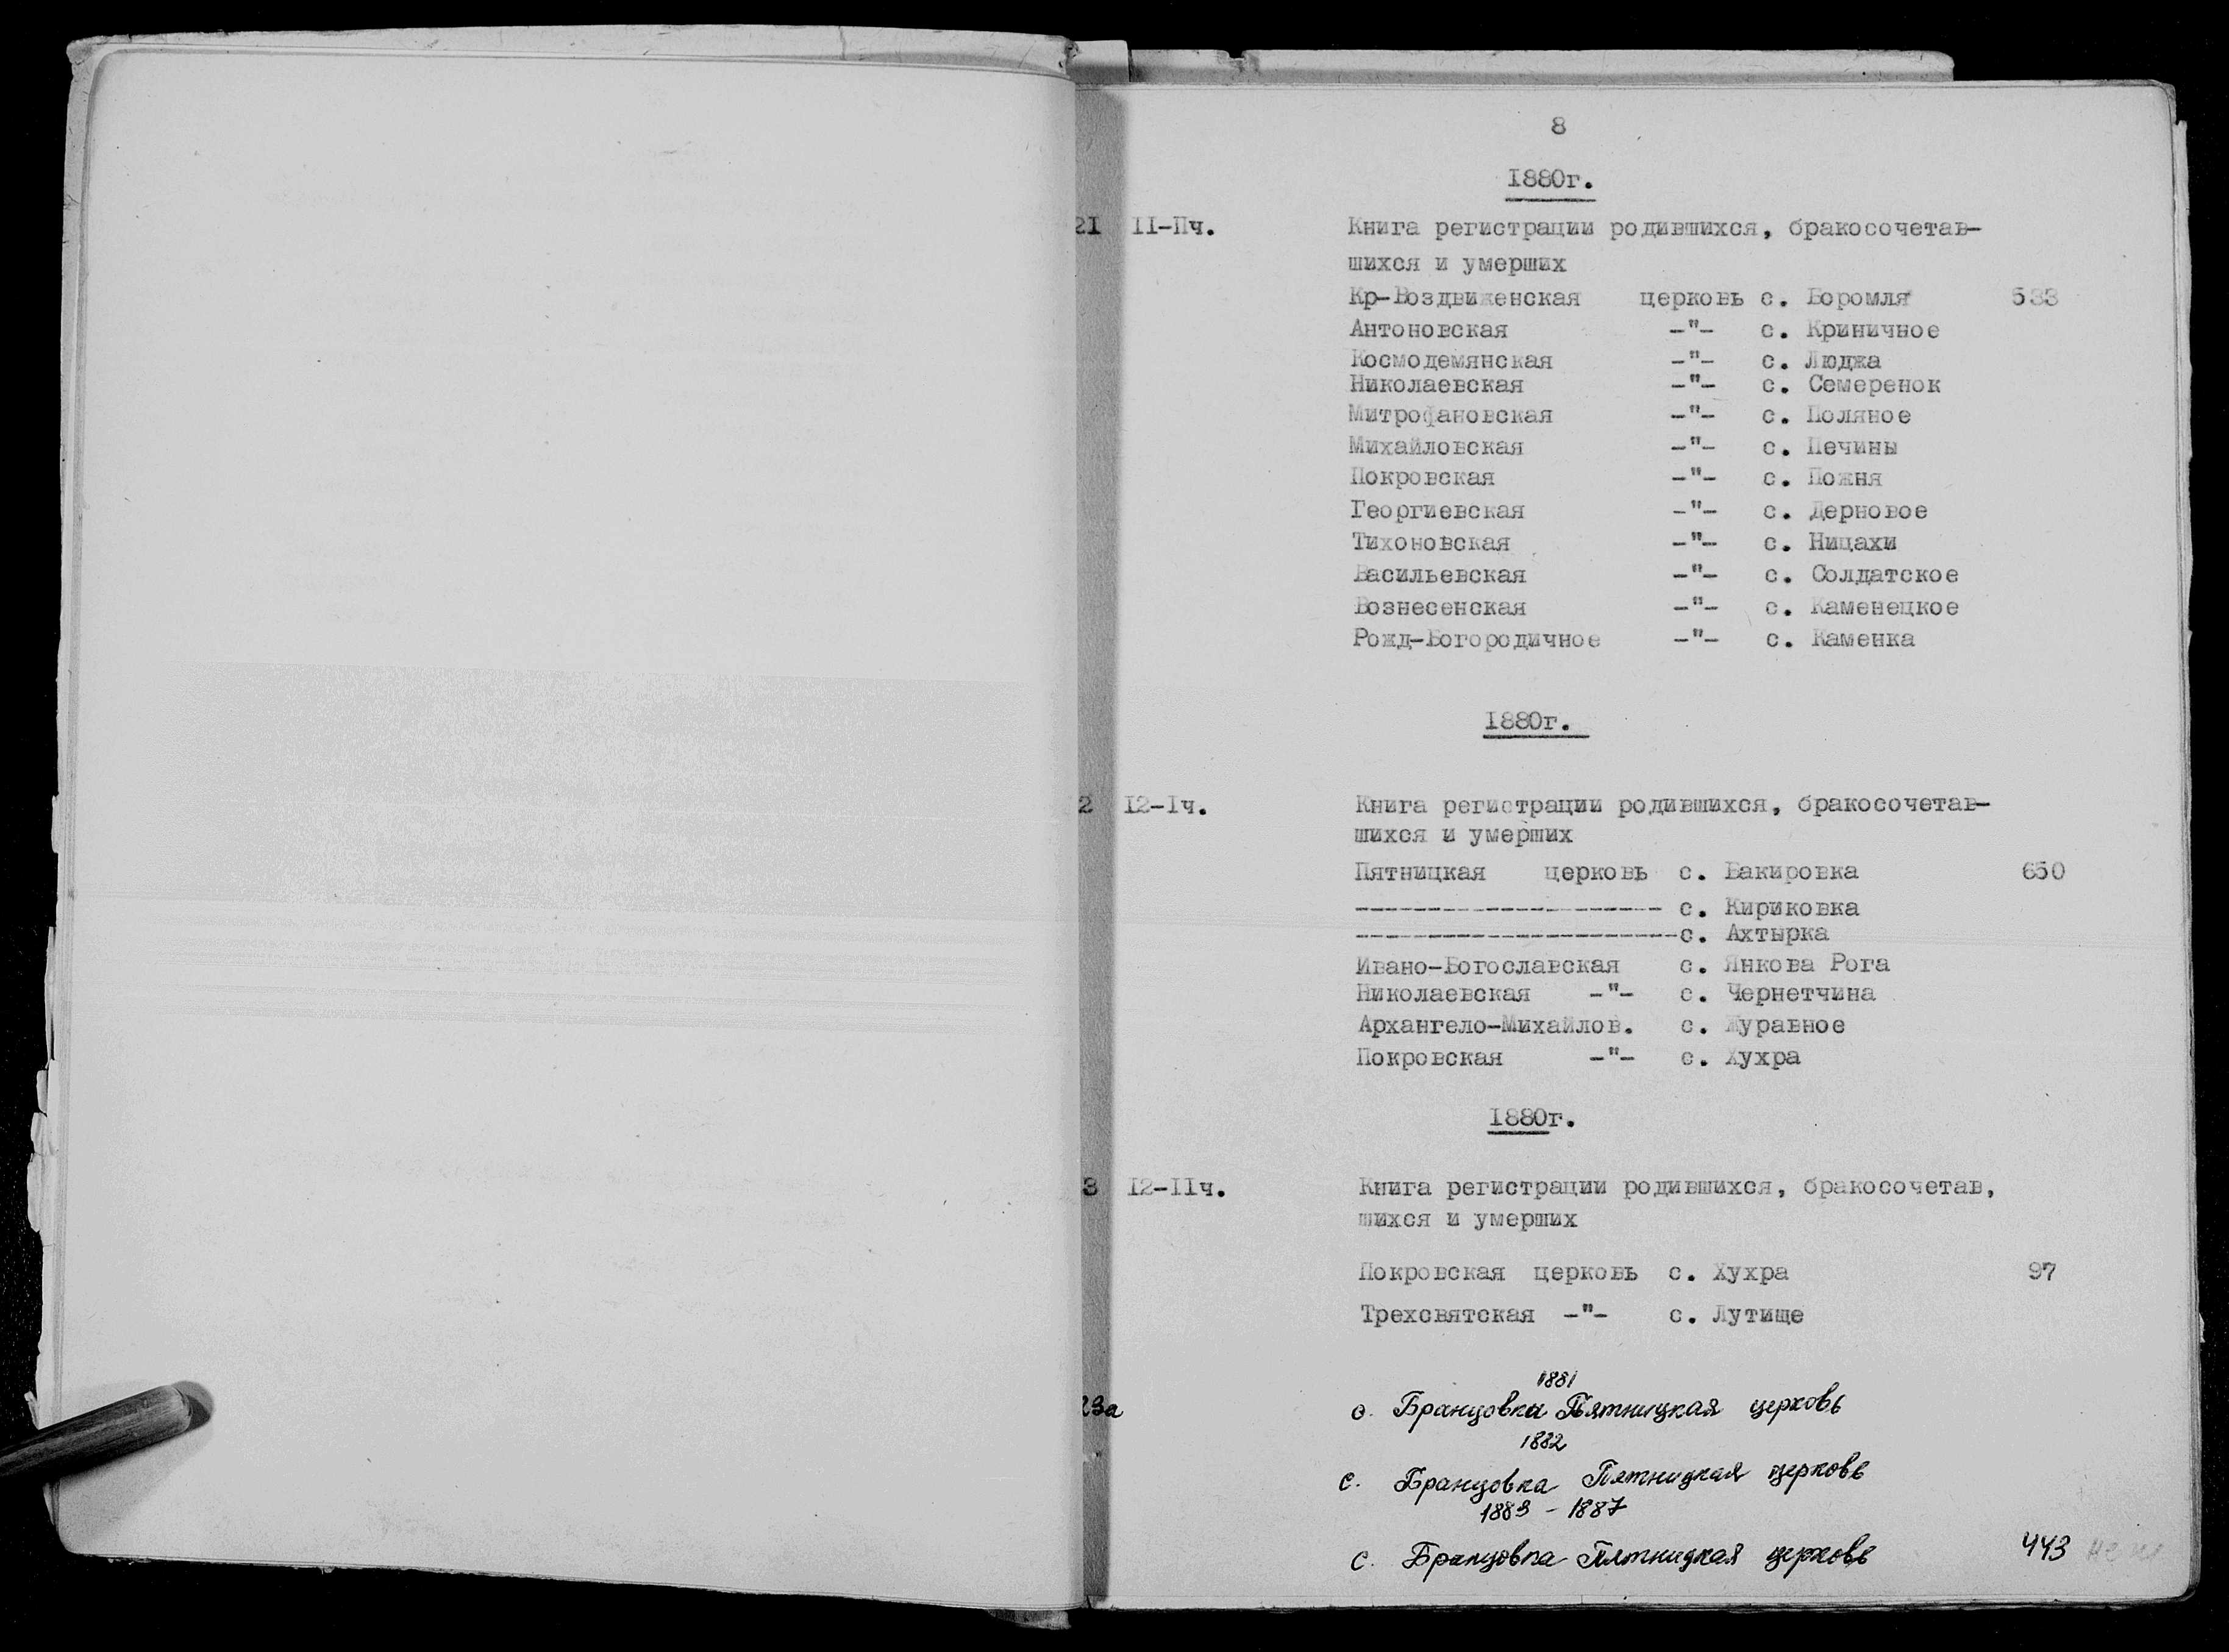 8
1880г.
21 II-IIч. Книга регистрации родившихся, бракосочетав-
шихся и умерших
Кр-Воздвиженская церковь с. Боромля 533
Антоновская -"- с. Криничное
Космодемянская -"- с. Люджа
Николаевская -"- с. Семеренок
Митрофановская -"- с. Поляное
Михайловская -"- с. Печины
Покровская -"- с. Пожня
Георгиевская -"- с. Дерновое
Тихоновская -"- с. Ницахи
Васильевская -"- с. Солдатское
Вознесенская -"- с. Каменецкое
Рожд-Богородичное -"- с. Каменка
1880г.
2 I2-Iч. Книга регистрации родившихся, бракосочетав-
шихся и умерших
Пятницкая церковь с. Бакировка 650
--------------------- с. Кириковка
----------------------с. Ахтырка
Ивано-Богославская с. Янкова Рога
Николаевская -"- с. Чернетчина
Архангело-Михайлов. с. Журавное
Покровская -"- с. Хухра
1880г.
3 I2-IIч. Книга регистрации родившихся, бракосочетав,
шихся и умерших
Покровская церковь с. Хухра 97
Трехсвятская -"- с. Лутище
1881
23а с. Бранцовка Пятницкая церковь
1882
с. Бранцовка Пятницкая церковь
1883 - 1887
с. Бранцовка Пятницкая церковь 443